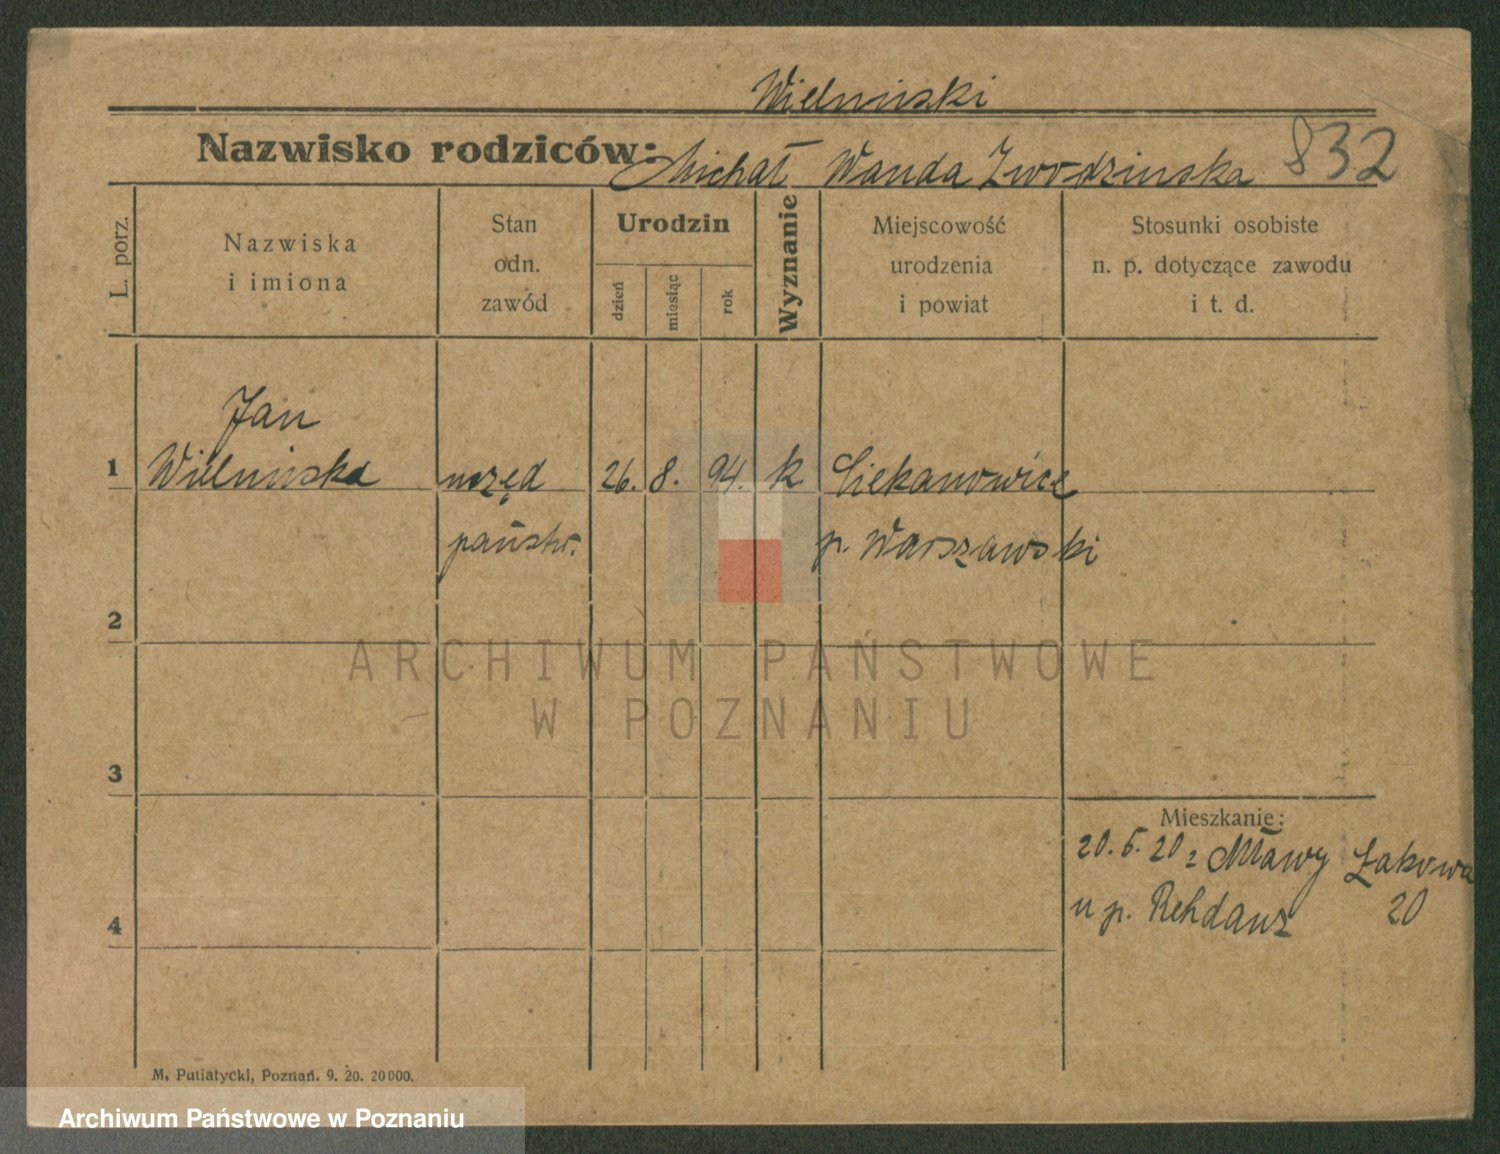 Wielminski
Nazwisko rodziców: Michał Wanda Zwodzinska 832
L. porz.
Nazwiska
i imiona
Stan
odn.
zawód
Urodzin
dzień
miesiąc
rok
Wyznanie
Miejscowość
urodzenia
i powiat
Stosunki osobiste
n. p. dotyczące zawodu
i t. d.
Jan
1 26. 8. 94. k.
państw. p. Warszawski
2
ARCHIWUM PAŃSTWOWE
W POZNANIU
3
Mieszkanie:
20. 5. 20 z Mławy Łąkowa
u p. Rehdanz 20
4
M. Putiatycki, Poznań. 9. 20. 20000.
Archiwum Państwowe w Poznaniu